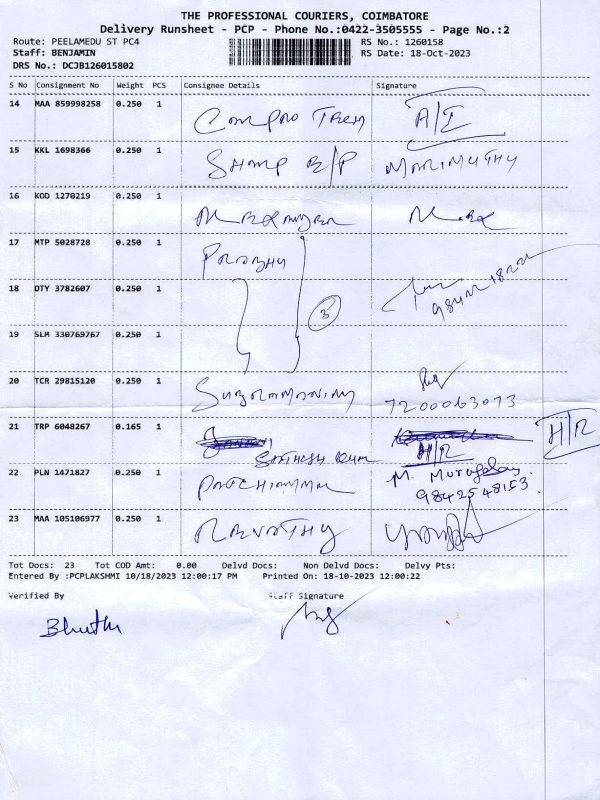 THE PROFESSIONAL COURIERS, COIMBATORE
Delivery Runsheet - PCP - Phone No.:0422-3505555 - Page No.:2
Route: PEELAMEDU ST PC4 RS No.: 1260158
Staff: BENJAMIN RS Date: 18-Oct-2023
DRS No.: DCJB126015802
S No Consignment No Weight PCS Consignee Details Signature
14 MAA 859998258 0.250 1 A/I
15 KKL 1698366 0.250 1 MARIMUTHU
16 KOD 1270219 0.250 1
17 MTP 5028728 0.250 1 PRABHU
18 OTY 3782607 0.250 1 3
19 SLM 330769767 0.250 1
20 TCR 29815120 0.250 1 SUBRAMANIAM
7200063073
21 TRP 6048267 0.165 1 H/R H/R
SATHISH KUM
22 PLN 1471827 0.250 1 M. Murugesan
98425 48153
23 MAA 105106977 0.250 1 REVATHY
Tot Docs: 23 Tot COD Amt: 0.00 Delvd Docs: Non Delvd Docs: Delvy Pts:
Entered By :PCPLAKSHMI 10/18/2023 12:00:17 PM Printed On: 18-10-2023 12:00:22
Verified By Staff Signature